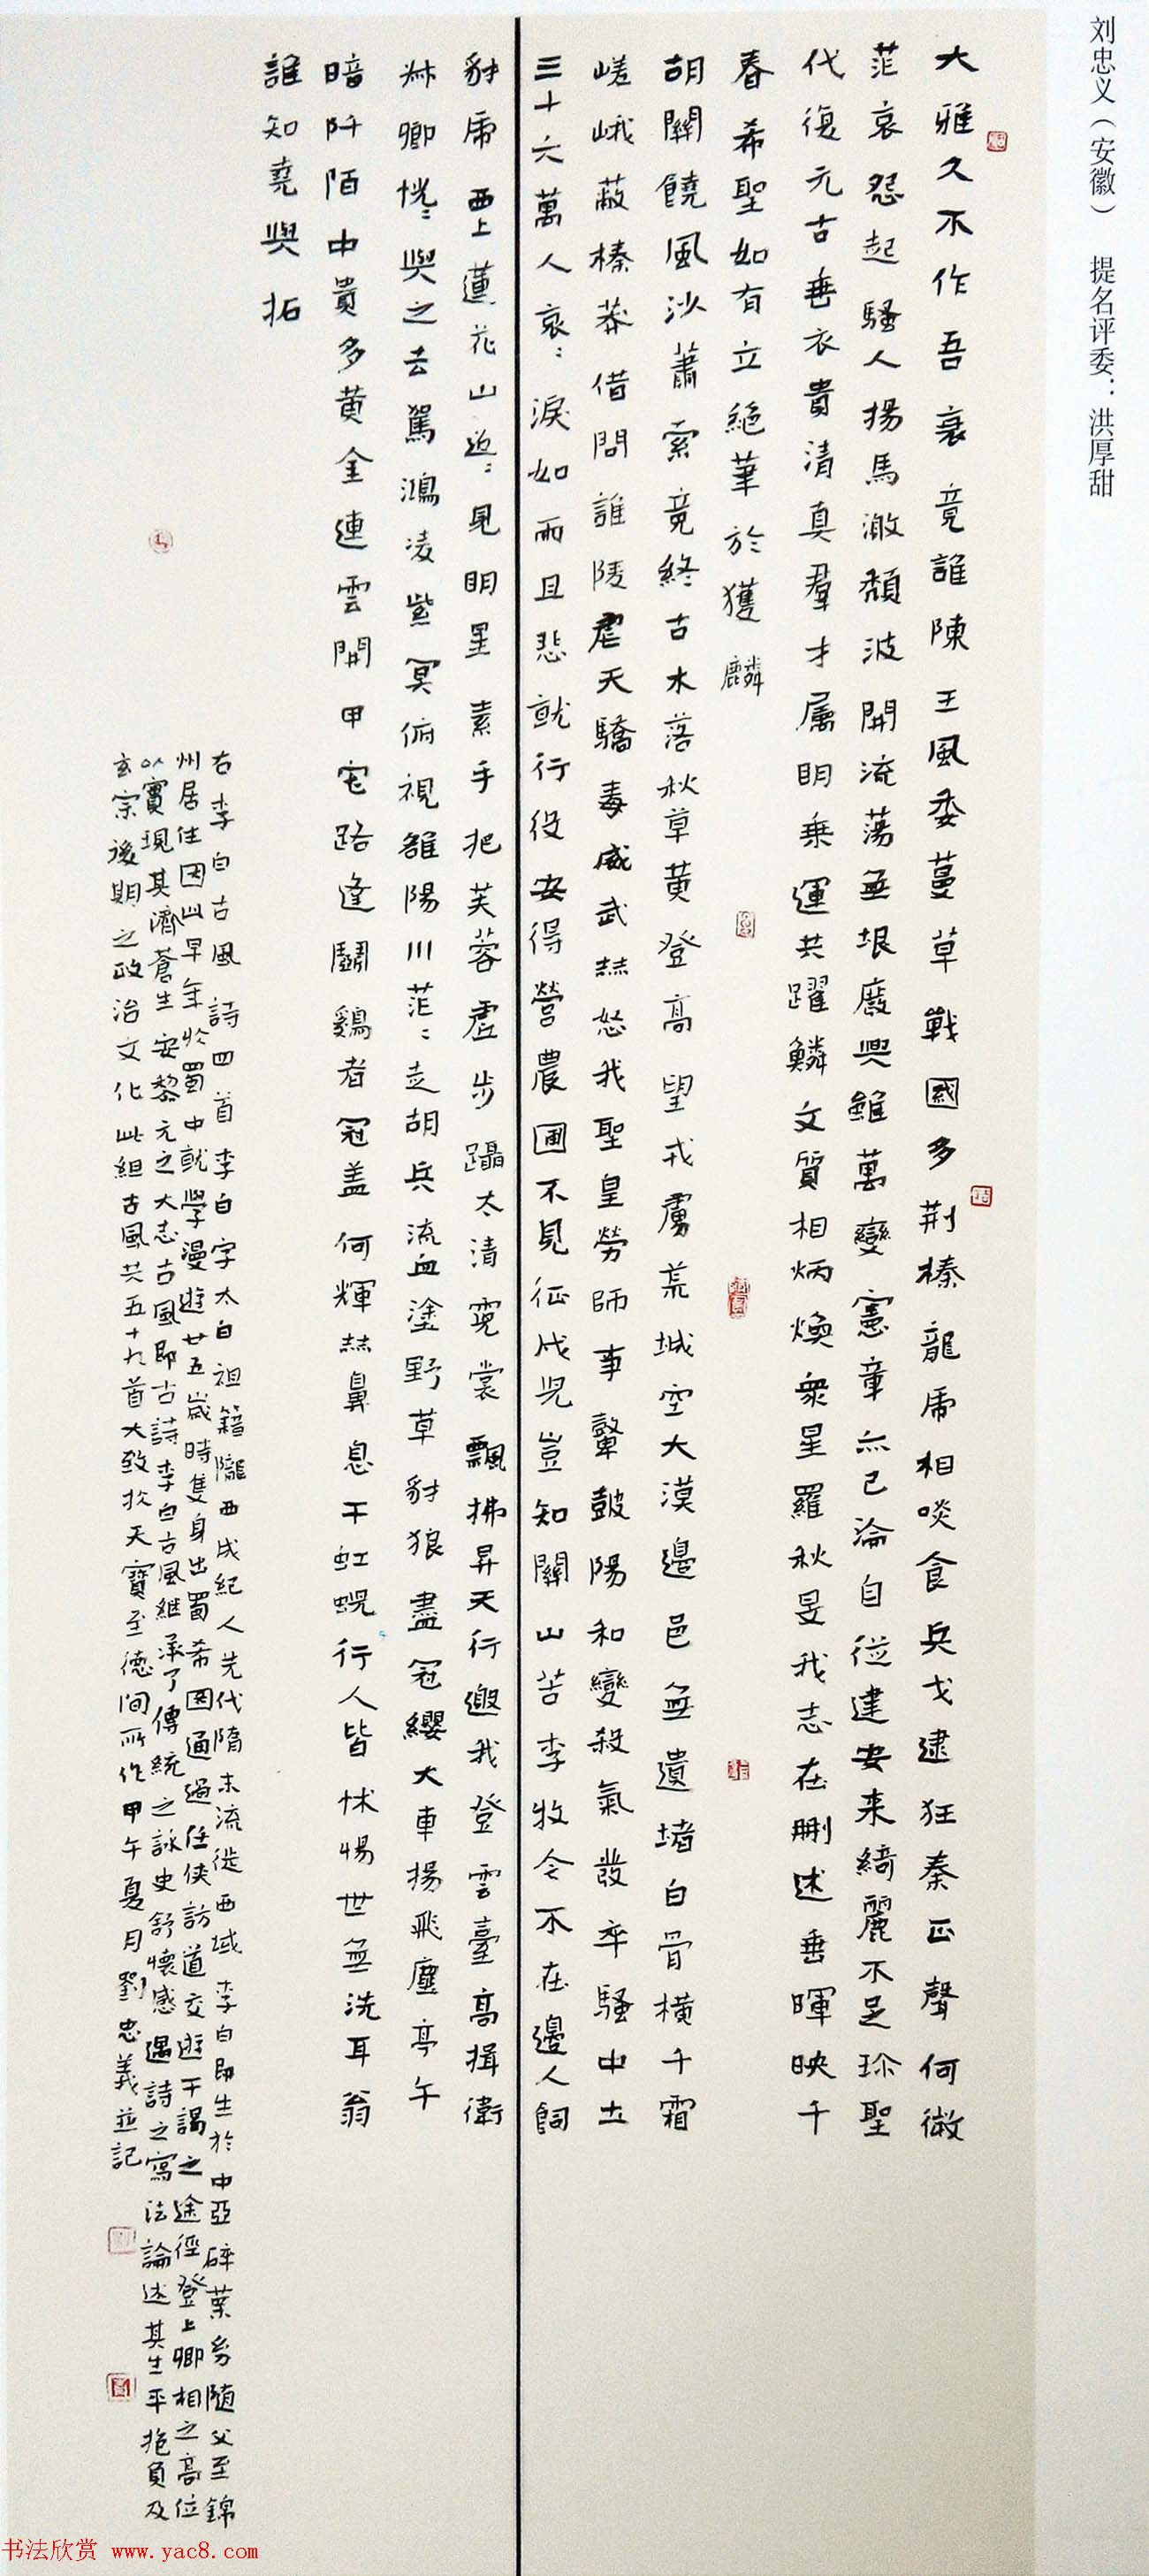 刘忠义（安徽） 提名评委：洪厚甜
大雅久不作吾衰竟誰陳王風委蔓草戰國多荆榛龍虎相啖食兵戈逮狂秦正聲何微
茫哀怨起騷人揚馬激頹波開流蕩無垠廢興雖萬變憲章亦已淪自從建安来綺麗不足珎聖
代復元古垂衣貴清真羣才屬明乗運共躍鱗文質相炳煥衆星羅秋旻我志在刪述垂暉映千
春希聖如有立絕筆於獲麟
胡關饒風沙蕭索竟終古木落秋草黄登高望戎虜荒城空大漠邊邑無遺堵白骨橫千霜
嵯峨蔽榛莽借問誰陵虐天驕毒威武赫怒我聖皇勞師事鼙鼓陽和變殺氣發卒騷中土
三十六萬人哀〻淚如雨且悲就行役安得營農圃不見征戍児豈知關山苦李牧今不在邊人飼
豺虎 西上蓮花山迢〻見明星素手把芙蓉虚步躡太清霓裳飄拂昇天行邀我登雲臺高揖衛
叔卿恍〻與之去駕鴻凌紫冥俯視雒陽川茫〻走胡兵流血塗野草豺狼盡冠纓大車揚飛塵亭午
暗阡陌中貴多黄金連雲開甲宅路逢鬭鷄者冠盖何輝赫鼻息干虹蜺行人皆怵惕世無洗耳翁
誰知堯與拓
右李白古風詩四首李白字太白祖籍隴西成紀人先代隋末流徙西域李白即生於中亞碎葉㓜随父至錦
州居住因此早年於蜀中就學漫遊廿五歲時隻身出蜀希图通過任俠訪道交遊干謁之途徑登上卿相之高位
以實現其濟蒼生安黎元之大志古風即古詩李白古風継承了傳統之詠史舒懷感遇詩之寫法論述其生平抱負及
玄宗後期之政治文化此組古風共五十九首大致於天寶至德间所作甲午夏月劉忠義並記
书法欣赏 www.yac8.com